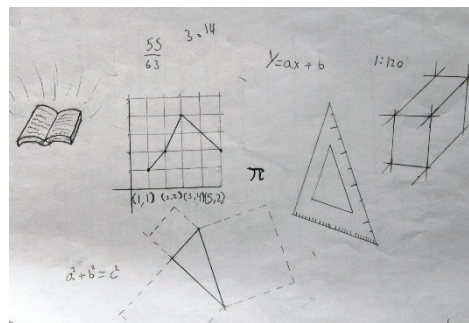 55
63
3.14
Y=ax+b
1:120
(1,1) (2,2) (3,4) (5,2)
π
a²+b²=c²